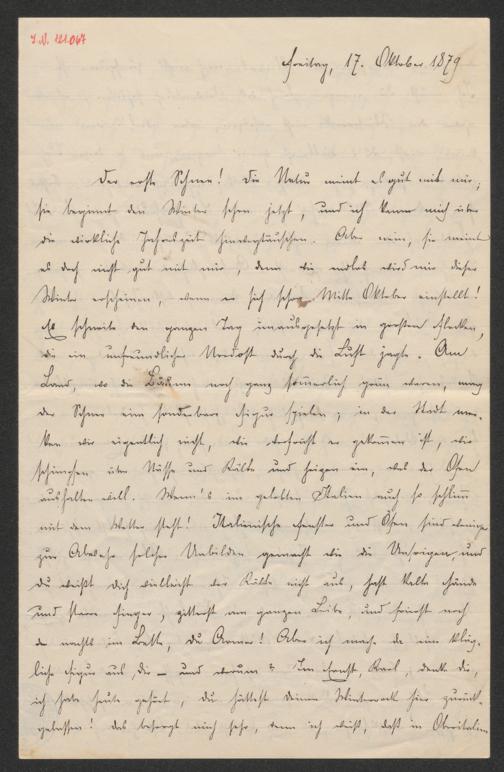 I.N. 121.047
Freitag, 17. Oktober 1879
Der erste Schnee! Die Natur meint es gut mit mir,
sie beginnt den Winter schon jetzt, und ich kann mich über
die wirkliche Jahreszeit hinwegtäuschen. Aber nein, sie meint
es doch nicht gut mit mir, denn wie endlos wird mir dieser
Winter erscheinen, wenn er sich schon Mitte Oktober einstellt!
Es schneite den ganzen Tag unausgesetzt in großen Flocken,
die ein unfreundlicher Nordost durch die Luft jagte. Am
Land, wo die Bäume noch ganz sommerlich grün waren, mag
der Schnee eine sonderbare Figur spielen; in der Stadt mer-
ken wir eigentlich nicht, wie verfrüht er gekommen ist, wir
schimpfen über Nässe und Kälte und heizen ein, was der Ofen
aushalten will. Wenn's im gelobten Italien auch so schlimm
mit dem Wetter steht! Italienische Fenster und Öfen sind weniger
zur Abwehr solcher Unbilden gemacht wie die Unsrigen, und
Du weißt Dich vielleicht der Kälte nicht aus, hast kalte Hände
und starre Finger, zitterst am ganzen Leibe, und frierst noch
des nachts im Bette, Du Armer! Aber ich mach da eine kläg-
liche Figur aus Dir – und warum? Im Ernst, Karl, denke Dir,
ich habe heute gehört, Du hättest Deinen Winterrock hier zurück-
gelassen! Das besorgt mich sehr, denn ich weiß, daß in Oberitalien